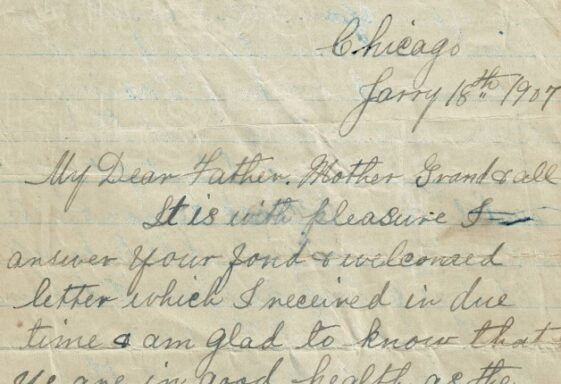 Chicago
Jarry 18th 1907
My Dear Father. Mother Grand & all
It is with pleasure I
answer your fond & welcomed
letter which I received in due
time & am glad to know that
ye are in good health as the